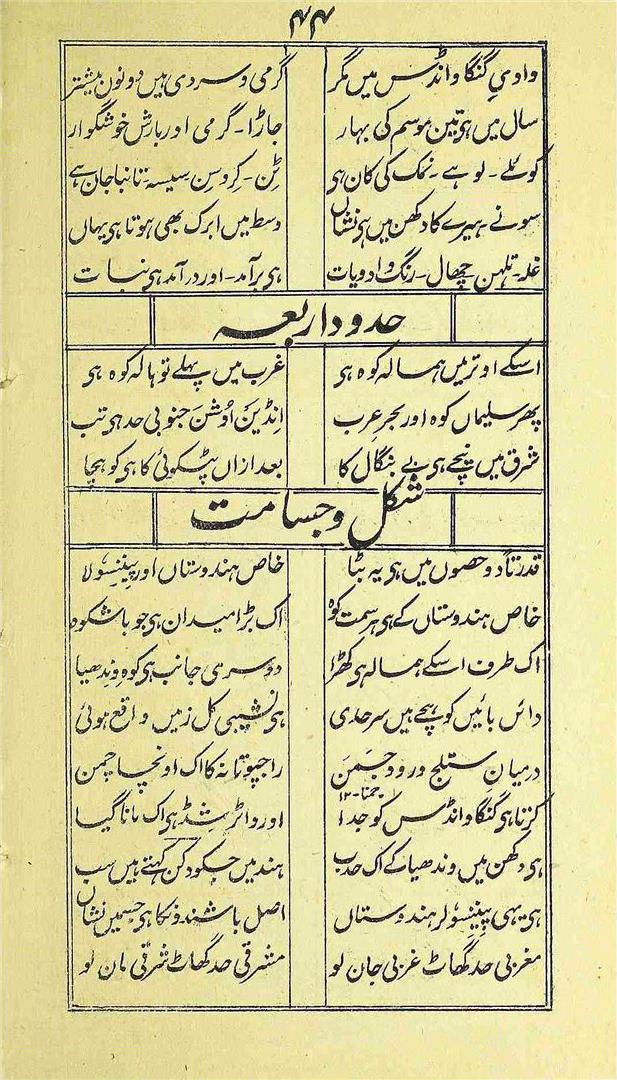 ۴۴
وادیِ گنگا و انڈس میں مگر گرمی و سردی ہیں دونوں بیشتر
سال میں ہی تین موسم کی بہار جاڑا۔ گرمی اور بارش خوشگوار
کوئلے۔ لوہے۔ نمک کی کان ہی ٹن۔ کروسن سیسہ تانبا جان ہے
سونے ہیرے کا دکھن میں ہی نشاں وسط میں ابرک بھی ہوتا ہی یہاں
غلہ۔ تلہن چھال۔ رنگ و ادویات ہی برآمد۔ اور درآمد ہی نبات
حدود اربعہ
اسکے اوتر میں ہمالہ کوہ ہی غرب میں پہلے تو ہالہ کوہ ہی
پھر سلیماں کوہ اور بحر عرب انڈین اوشن جنوبی حد ہی تب
شرق میں نیچے ہی بے بنگال کا بعد ازاں پٹکوئی کا ہی کوہچا
شکل و جسامت
قدرتاً دو حصوں میں ہی یہ بٹا خاص ہندوستاں اور پیننسولا
خاص ہندوستاں کے ہی ہر سمت کوہ اک بڑا میدان ہی جو باشکوہ
اک طرف اسکے ہمالہ ہی کھڑا دوسری جانب ہی کوہِ وندھیا
دائں بائیں کوہچے ہیں سرحدی ہی نشیبی کل زمیں واقع ہوئی
درمیانِ ستلج و رود جمن راجپوتانہ کا اک اونچا چمن
جمنا۔۱۲
کرتا ہی گنگا و انڈس کو جدا اور واٹرشڈ ہی اک مانا گیا
ہی دکھن میں وندھیا کے اک حدب ہند میں جسکو دکن کہتے ہیں سب
ہی یہی پیننسولر ہندوستاں اصل باشندونکا ہی جسمیں نشاں
مغربی حد گھاٹ غربی جان لو مشرقی حد گھاٹ شرقی مان لو